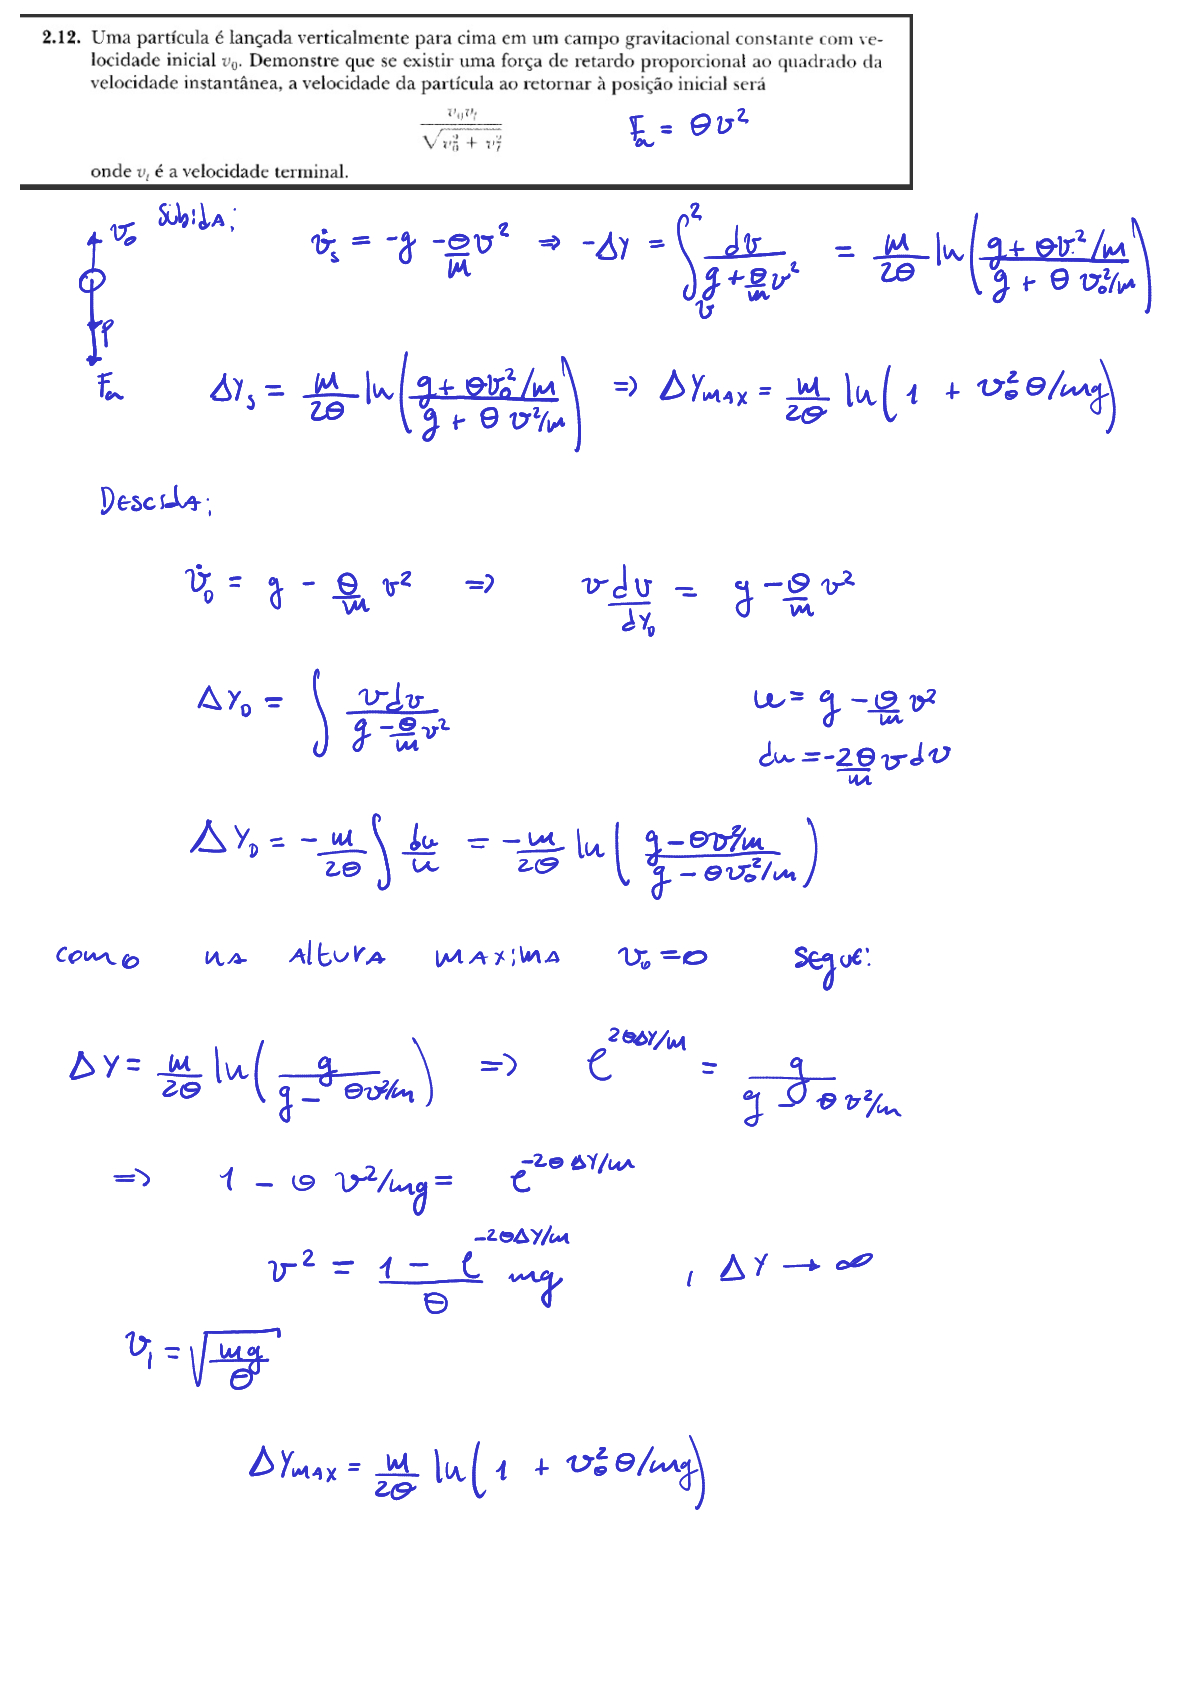 2.12. Uma partícula é lançada verticalmente para cima em um campo gravitacional constante com ve-
locidade inicial v₀. Demonstre que se existir uma força de retardo proporcional ao quadrado da
velocidade instantânea, a velocidade da partícula ao retornar à posição inicial será
v₀vₜ / √(v₀² + vₜ²)
Fₐ = θv²
onde vₜ é a velocidade terminal.
v₀ Subida;
v̇ₛ = -g - θ/m v² => -ΔY = ∫ᵥ² dv / (g + θ/m v²) = m/2θ ln((g + θv²/m) / (g + θv₀²/m))
P
Fₐ
ΔYₛ = m/2θ ln((g + θv₀²/m) / (g + θv²/m)) => ΔYMAX = m/2θ ln(1 + v₀²θ/mg)
Descida;
v̇_D = g - θ/m v² => v dv/dY_D = g - θ/m v²
ΔY_D = ∫ v dv / (g - θ/m v²)
u = g - θ/m v²
du = -2θ/m v dv
ΔY_D = -m/2θ ∫ du/u = -m/2θ ln((g - θv²/m) / (g - θv₀²/m))
como na altura maxima v₀ = 0 segue:
ΔY = m/2θ ln(g / (g - θv²/m)) => e^(2θΔY/m) = g / (g - θv²/m)
=> 1 - θv²/mg = e^(-2θΔY/m)
v² = (1 - e^(-2θΔY/m))/θ mg , ΔY → ∞
v₁ = √(mg/θ)
ΔYMAX = m/2θ ln(1 + v₀²θ/mg)